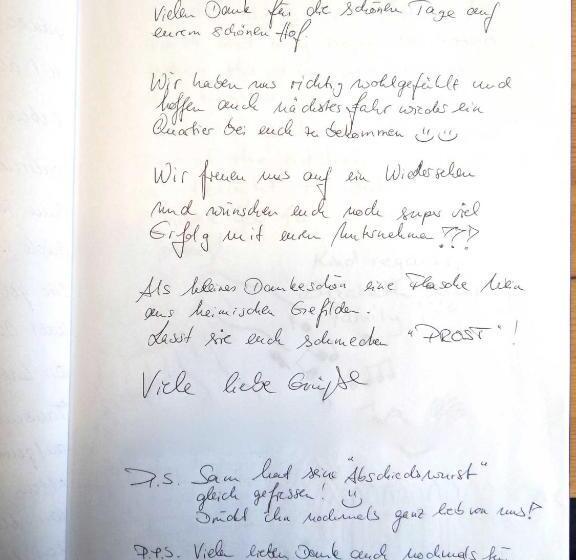 Vielen Dank für die schönen Tage auf
eurem schönen Hof.
Wir haben uns richtig wohlgefühlt und
hoffen auch nächstes Jahr wieder ein
Quartier bei euch zu bekommen
Wir freuen uns auf ein Wiedersehen
und wünschen euch noch super viel
Erfolg mit eurem Unternehmen
Als kleines Dankeschön eine Flasche Wein
aus heimischen Gefilden.
Lasst sie euch schmecken "PROST"!
Viele liebe Grüße
P.S. Sam hat seine "Abschiedswurst"
gleich gefressen!
Drückt ihn nochmals ganz lieb von uns!
P.P.S. Vielen lieben Dank auch nochmals für